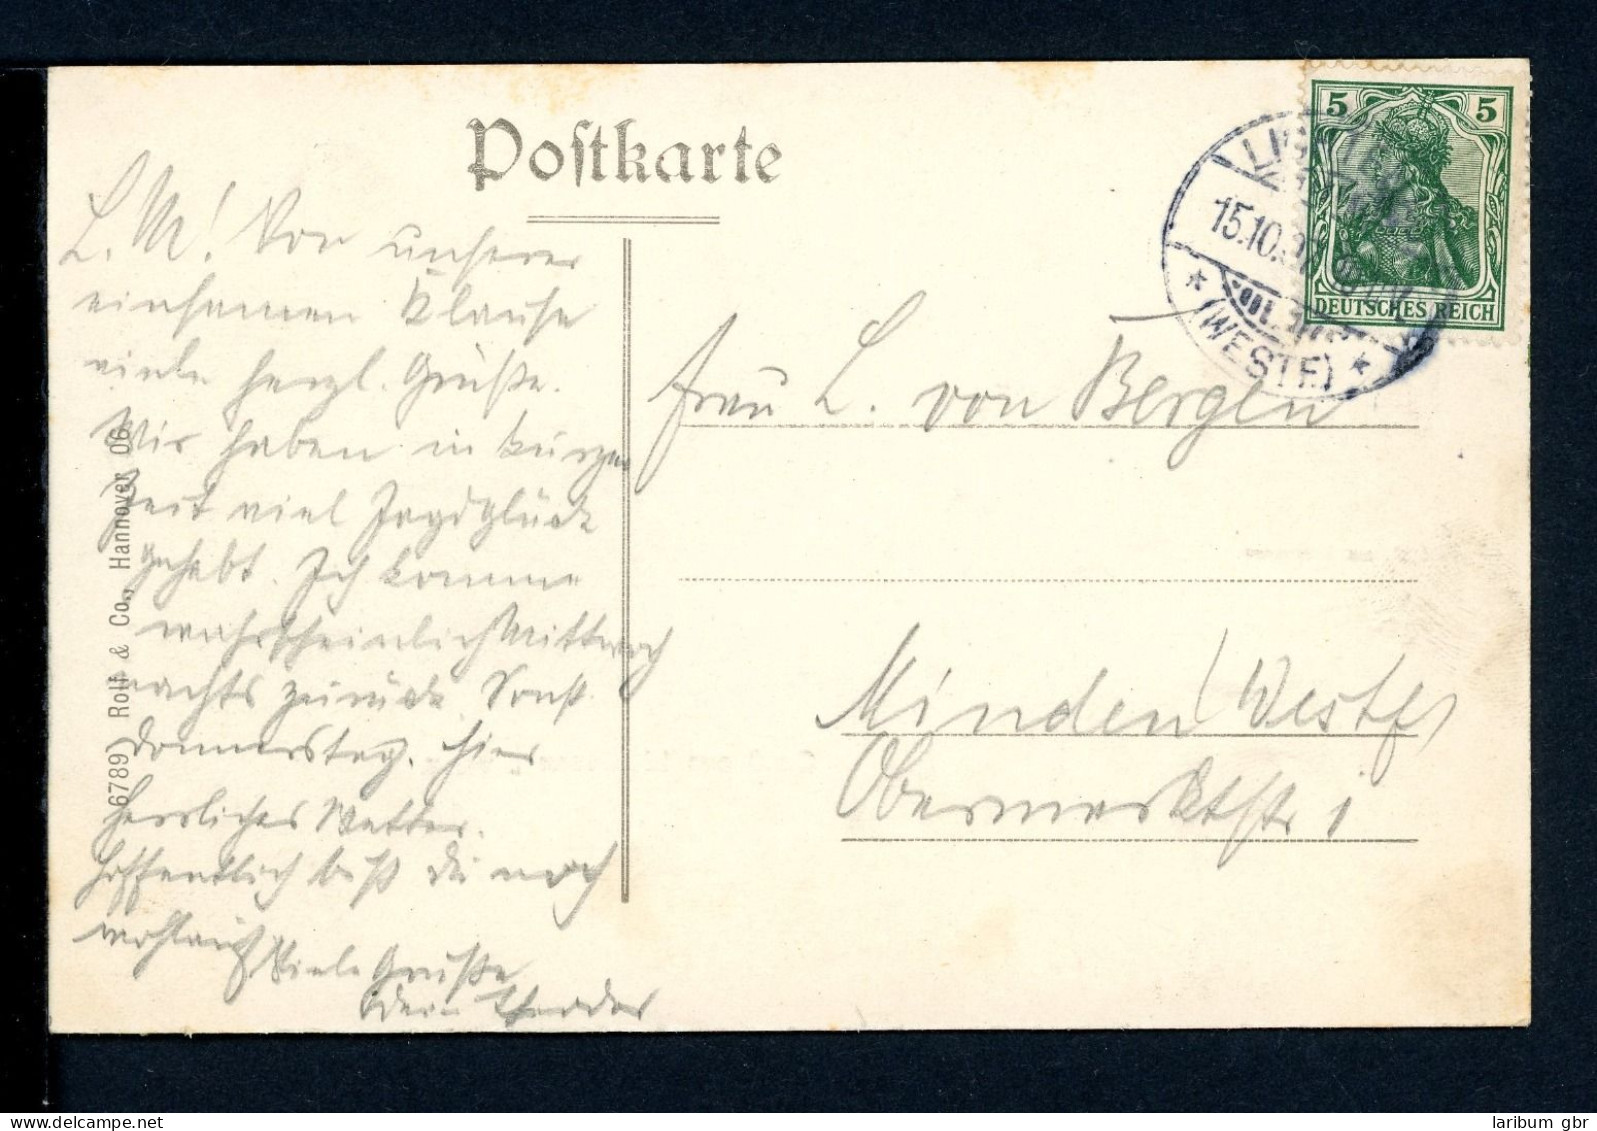 Postkarte
L. M! Von unserer
einsamen Klause
viele herzl. Grüße.
Wir haben in kurzer
Zeit viel Jagdglück
gehabt. Ich komme
wahrscheinlich Mittwoch
nachts zurück. Sonst
Donnerstag. Hier
herrliches Wetter.
Hoffentlich bist du noch
wohlauf Viele Grüße
dein Theodor
6789) Rolf & Co., Hannover 06
5 5
DEUTSCHES REICH
15.10.07
(WESTF.)
Frau L. von Bergen
Minden (Westf)
Obermarktstr 1
laribum gbr